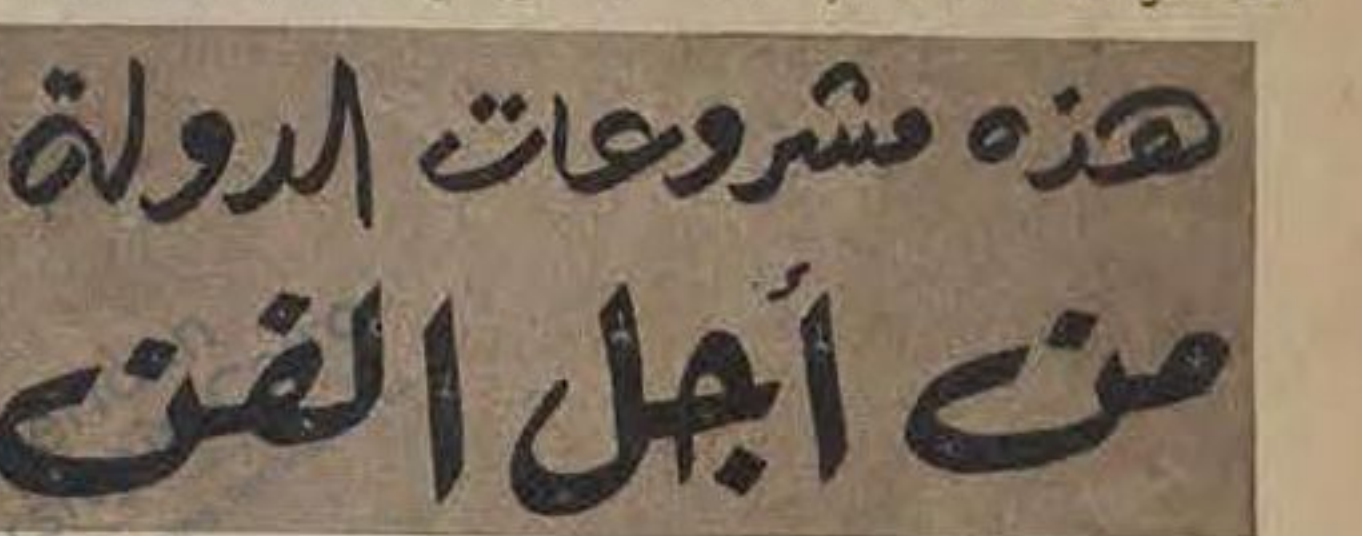 هذه مشروعات الدولة
من أجل الفن